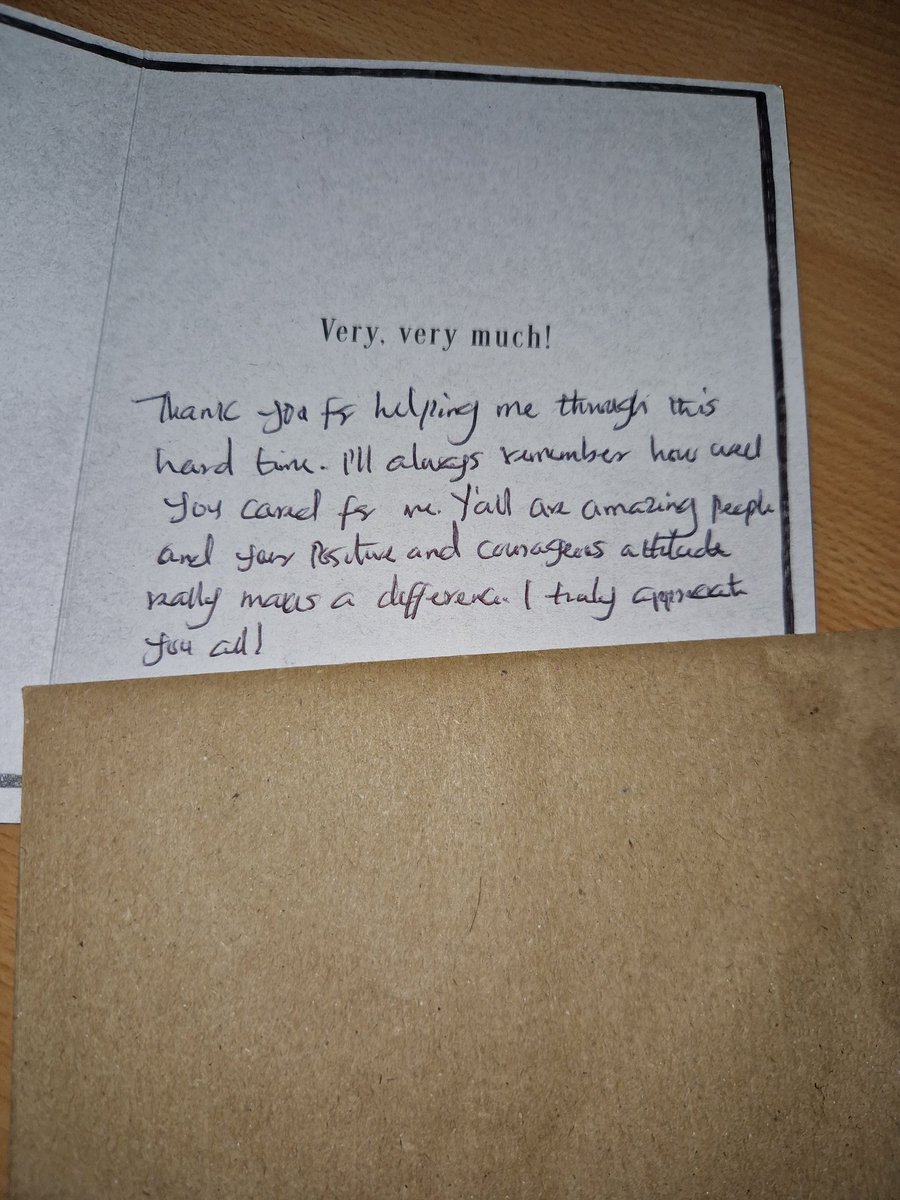 Very, very much!
Thank you for helping me through this
hard time. I'll always remember how well
you cared for me. Y'all are amazing people
and your Positive and courageous attitude
really makes a difference. I truly appreciate
you all!